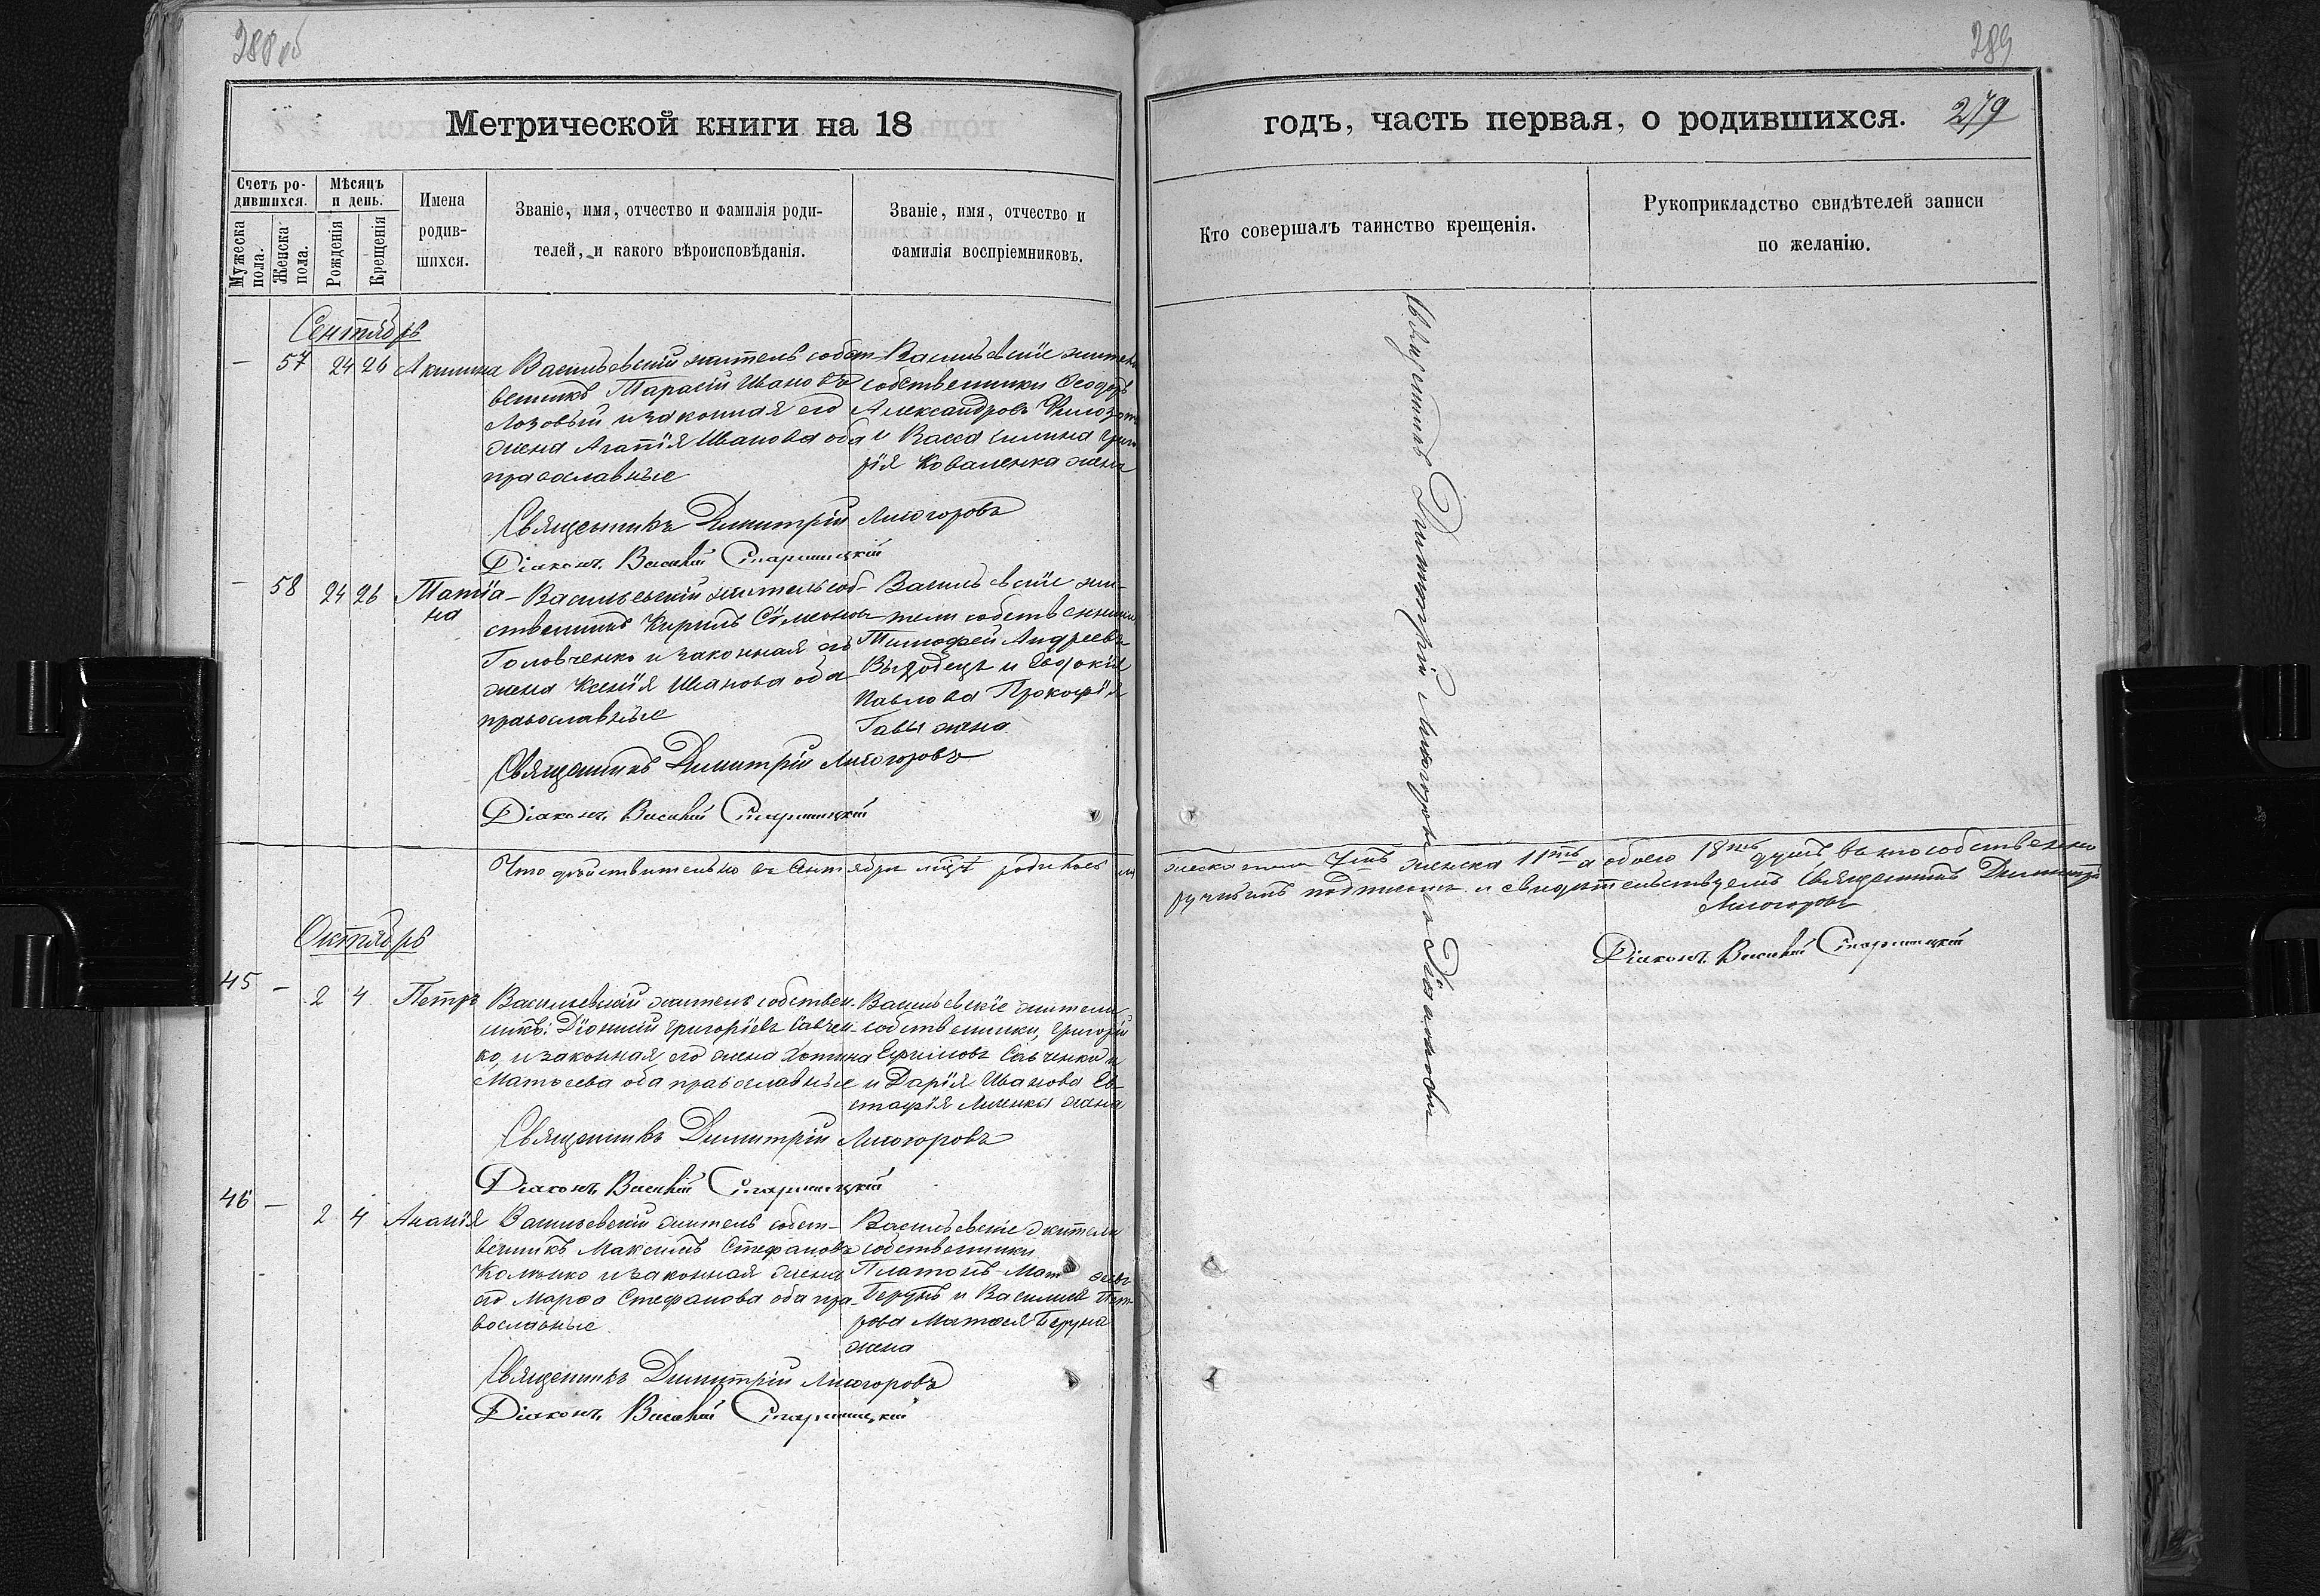 288 об
289
Метрической книги на 18
годъ, часть первая, о родившихся.
279
Счетъ ро-
дившихся.
Мужеска
пола.
Женска
пола.
Мѣсяцъ
и день.
Рожденія
Крещенія
Имена
родив-
шихся.
Званіе, имя, отчество и фамилія роди-
телей, и какого вѣроисповѣданія.
Званіе, имя, отчество и
фамилія воспріемниковъ.
Кто совершалъ таинство крещенія.
Рукоприкладство свидѣтелей записи
по желанію.
Сентябрь
— 57 24 26 Акилина
Васильевскій житель собст-
венникъ Тарасій Ивановъ
Лозовый и законная его
жена Агапія Иванова оба
православные
Васильевскіе жители
собственники Ѳеодоръ
Александровъ
и Васса Григо-
рія Коваленка жена
Священникъ Димитрій Лисогоровъ
Діаконъ Василій Старицкій
— 58 24 26 Татіа-
на
Васильевскій житель соб-
ственникъ Кирилъ Сѵмеоновъ
Головченко и законная его
жена Ксенія Иванова оба
православные
Васильевскіе жи-
тели собственники
Тимофей Андреевъ
и Евдокія
Павлова Прокофія
Гавы жена
Священникъ Димитрій Лисогоровъ
Діаконъ Василій Старицкій
Что дѣйствительно въ Сентябрѣ мѣсяцѣ родилось
мужска пола 7мь женска 11ть а обоего 18ть душъ, въ томъ собственно
ручнымъ подписомъ и свидѣтельствуемъ Священникъ Димитрій
Лисогоровъ
Діаконъ Василій Старицкій
Октябрь
45 — 2 4 Петръ
Васильевскій житель собствен-
никъ Діонисій Григоріевъ Савчен-
ко, и законная его жена Хотина
Матѳеева оба православные
Васильевскіе жители
собственники, Григорій
Ефимовъ Савченко
и Дарія Иванова Ев-
стафія жена
Священникъ Димитрій Лисогоровъ
Діаконъ Василій Старицкій
46 — 2 4 Ананія
Васильевскій житель собст-
венникъ Максимъ Стефановъ
и законная жена
его Марѳа Стефанова оба пра-
вославные
Васильевскіе жители
собственники
Платонъ Матѳеевъ
Берунъ и Василиса Пет-
рова Матѳея Беруна
жена
Священникъ Димитрій Лисогоровъ
Діаконъ Василій Старицкій
Священникъ Димитрій Лисогоровъ съ Діакономъ